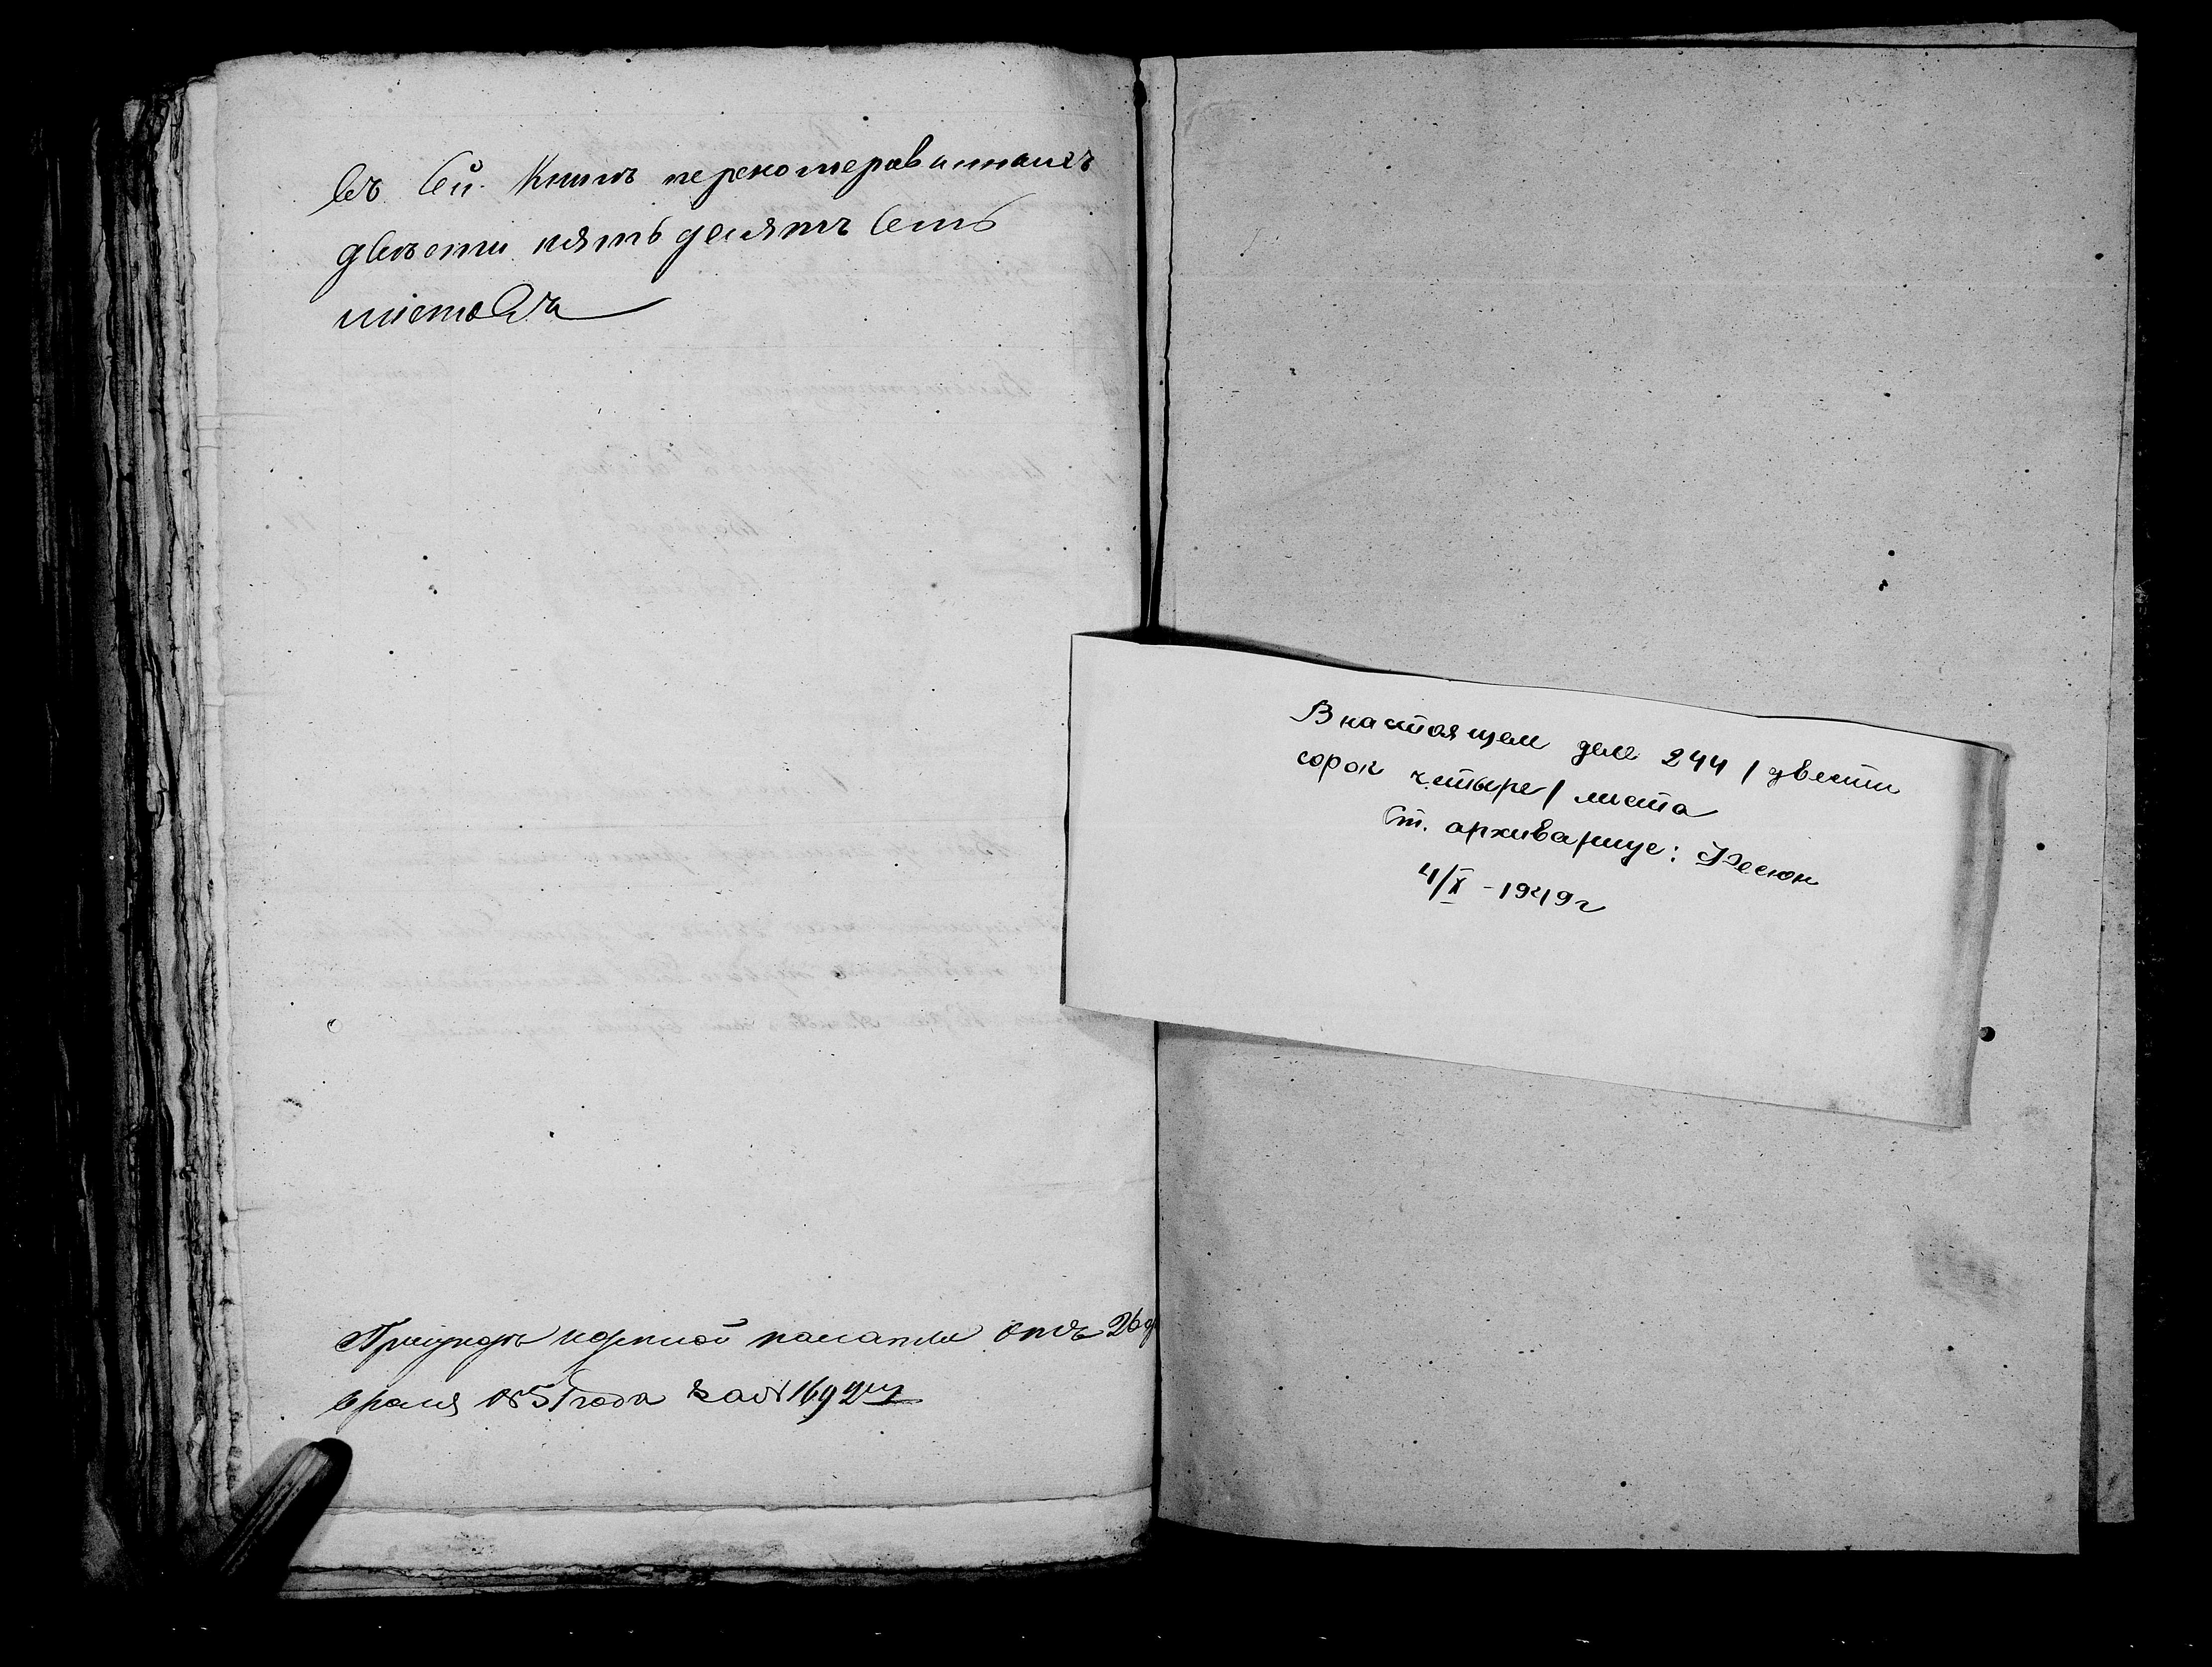 въ сей Книгѣ перенумерованныхъ
двѣсти пять десятъ семь
листовъ
При указѣ казенной палаты отъ 26 ф
враля 1851 года за № 1692м
В настоящем деле 244 / двести
сорок четыре / листа
Ст. архивариус: Фесюк
4/X - 1949 г